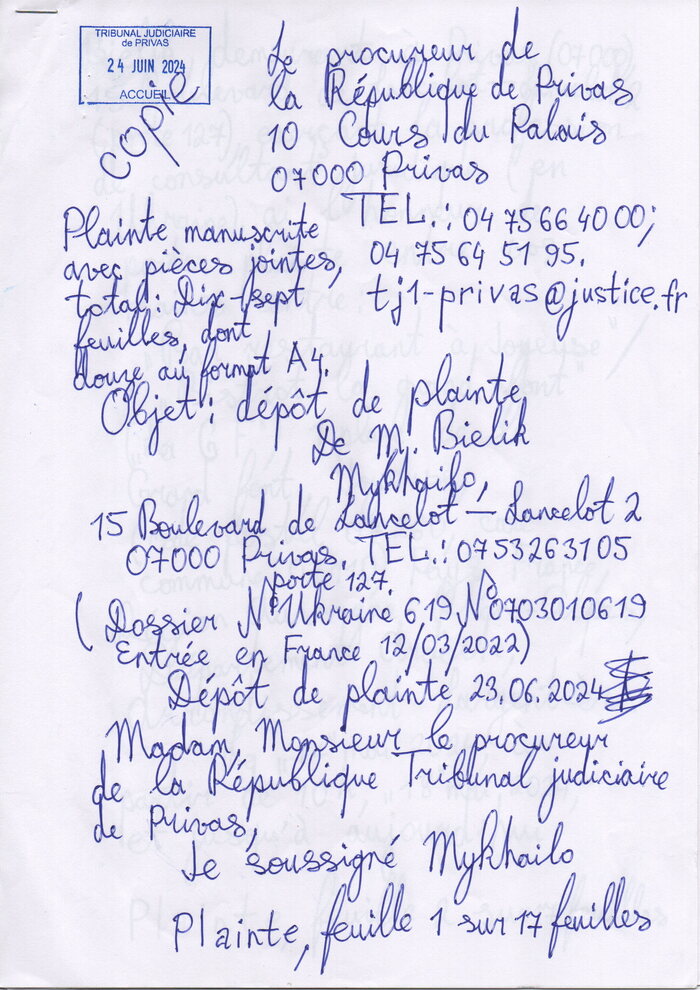 TRIBUNAL JUDICIAIRE
de PRIVAS
24 JUIN 2024
ACCUEIL
COPIE
Le procureur de
la République de Privas
10 Cours du Palais
07000 Privas
TEL.: 04 75 66 40 00;
04 75 64 51 95.
tj1-privas@justice.fr
Plainte manuscrite
avec pièces jointes,
total: Dix-sept
feuilles, dont
douze au format A4.
Objet: dépôt de plainte
De M. Bielik
Mykhailo,
15 Boulevard de Lancelot – Lancelot 2
07000 Privas. TEL.: 0753263105
porte 127.
(Dossier N° Ukraine 619 N°0703010619
Entrée en France 12/03/2022)
Dépôt de plainte 23.06.2024
Madam, Monsieur le procureur
de la République Tribunal judiciaire
de Privas,
Je soussigné Mykhailo
Plainte, feuille 1 sur 17 feuilles